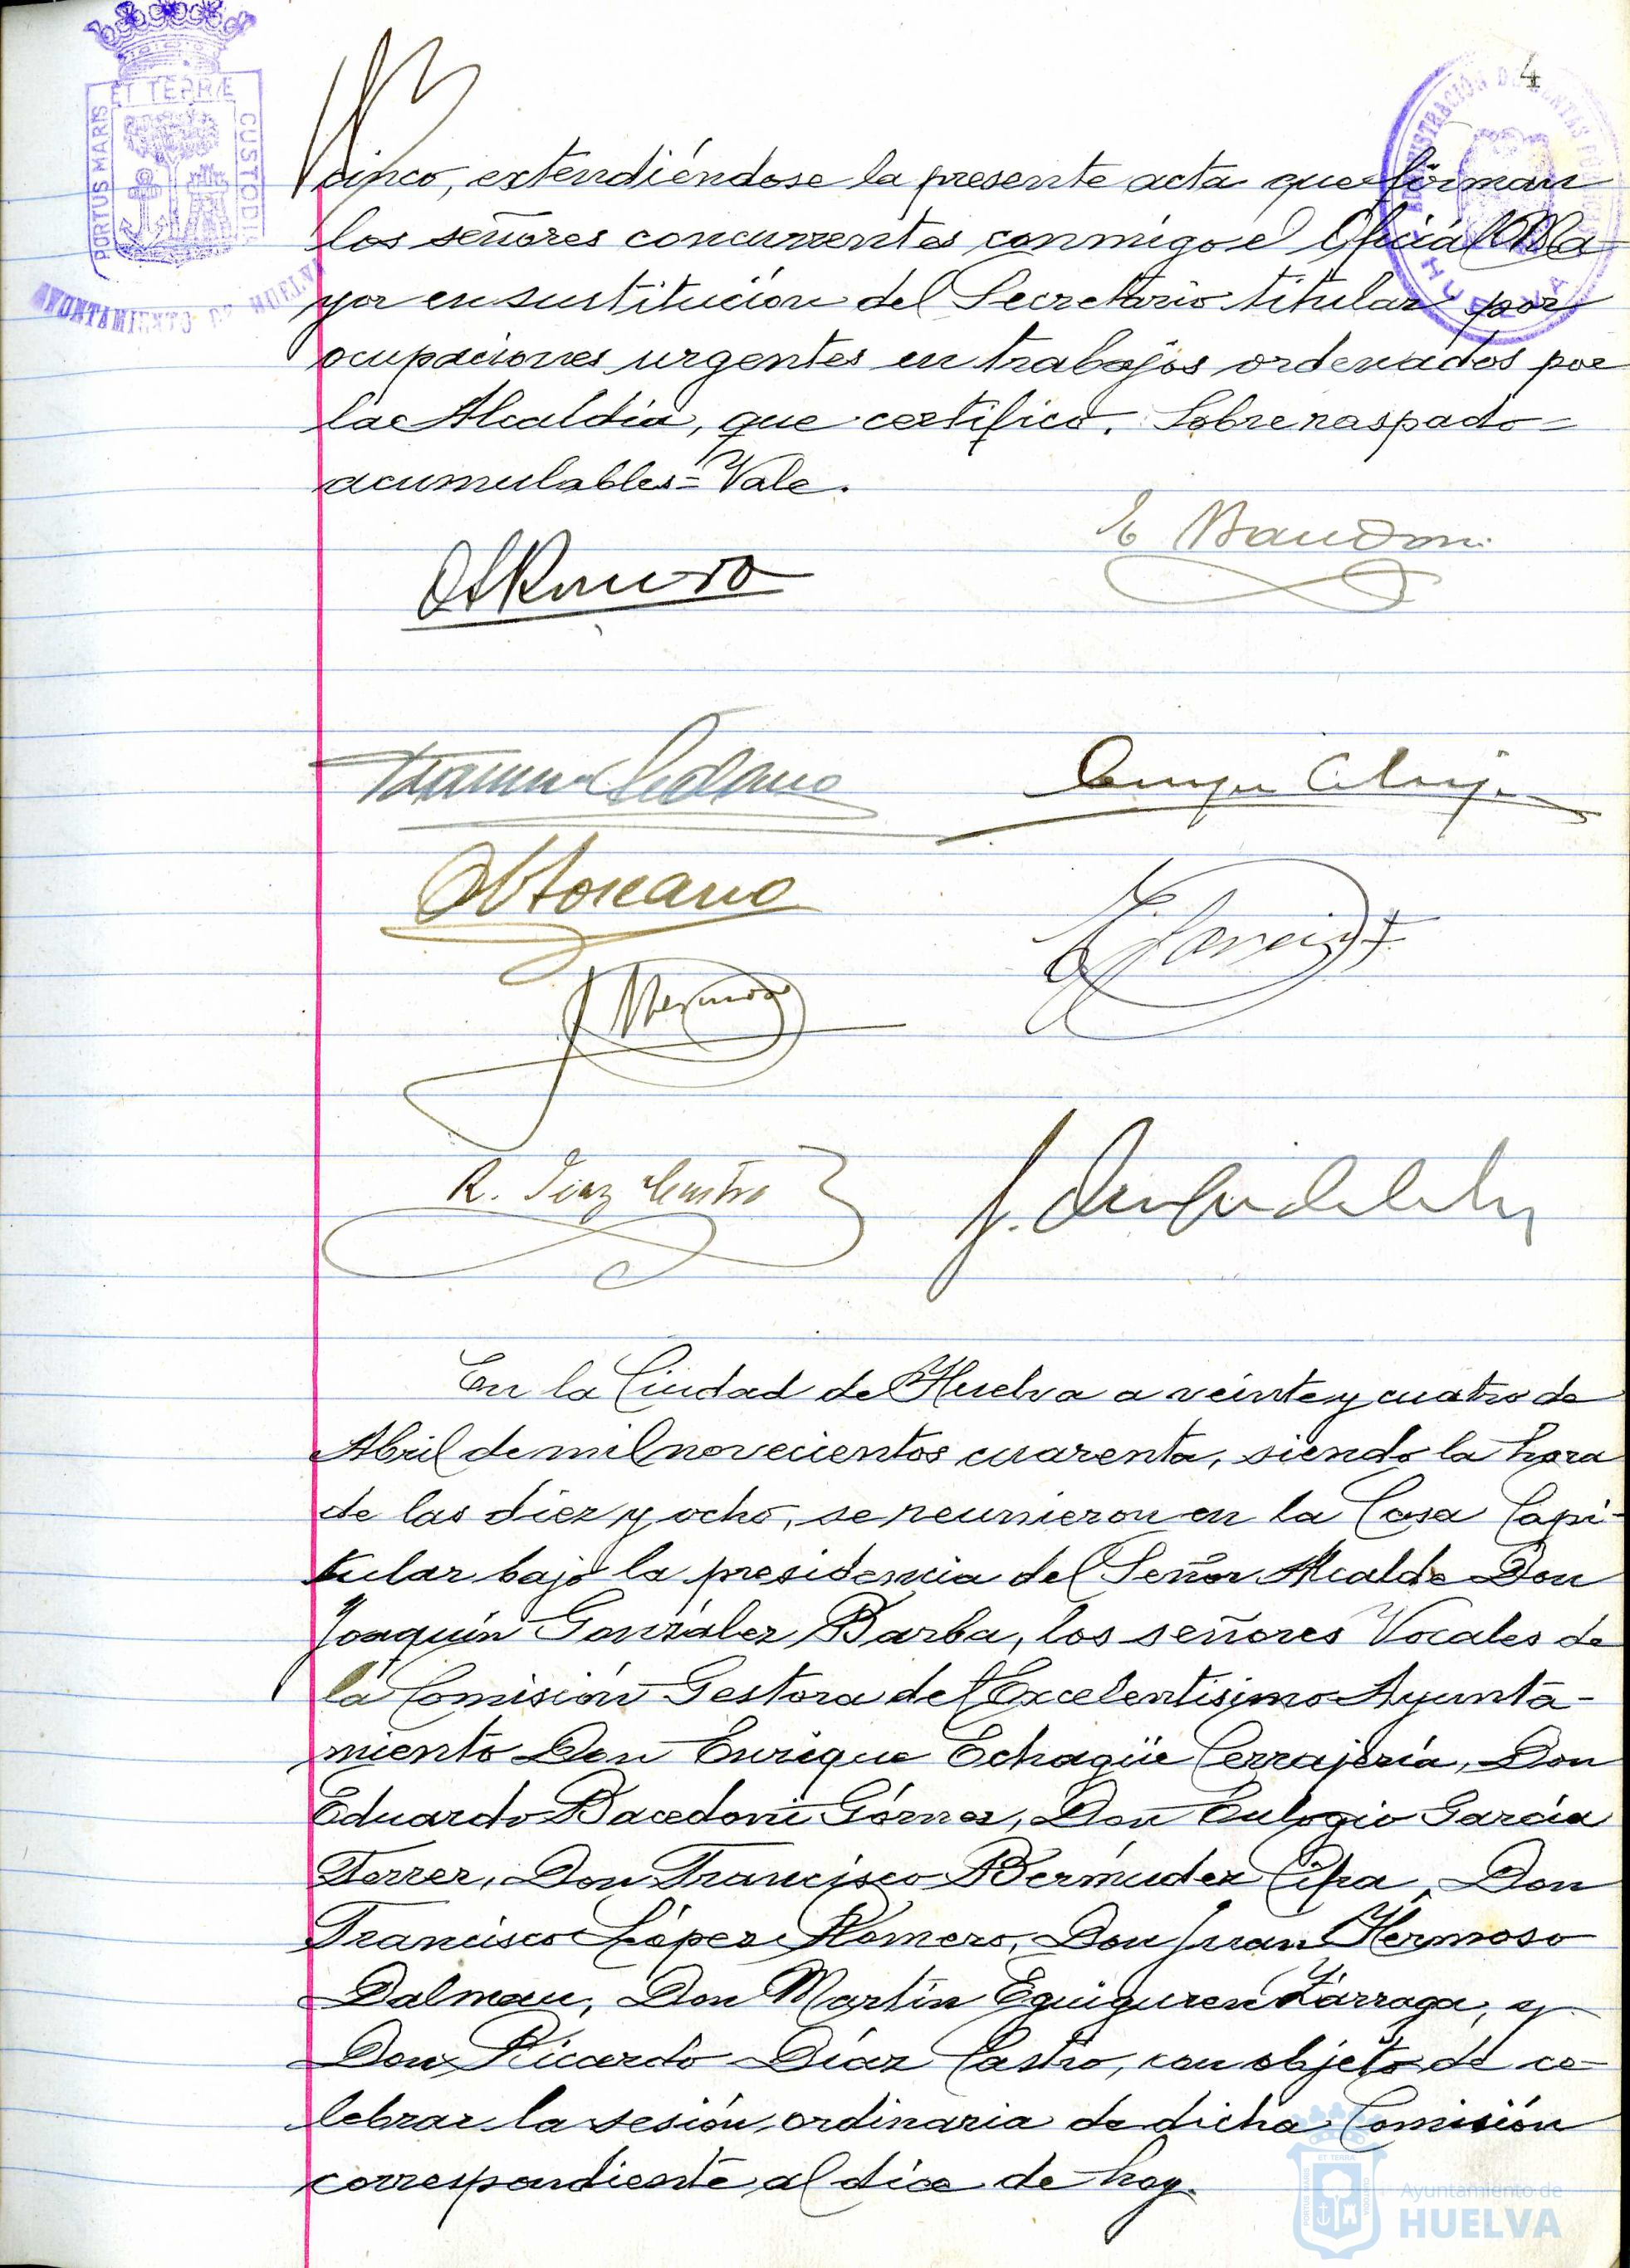 4
PORTUS MARIS ET TERRÆ CUSTODIA
AYUNTAMIENTO DE HUELVA
HUELVA
cinco, extendiéndose la presente acta que firman
los señores concurrentes conmigo el Oficial Ma-
yor en sustitución del Secretario titular por
ocupaciones urgentes en trabajos ordenados por
la Alcaldía, que certifico. Sobre raspado =
acumulables = Vale.
R. Diaz Castro
En la Ciudad de Huelva a veinte y cuatro de
Abril de mil novecientos cuarenta, siendo la hora
de las diez y ocho, se reunieron en la Casa Capi-
tular bajo la presidencia del Señor Alcalde Don
Joaquín González Barba, los señores Vocales de
la Comisión Gestora del Excelentísimo Ayunta-
miento Don Enrique Echagüe Cerrajería, Don
Eduardo Bacedoni Gómez, Don Eulogio García
Ferrer, Don Francisco Bermúdez Cifra, Don
Francisco López Romero, Don Juan Hermoso
Dalmau, Don Martín Eguiguren Zárraga, y
Don Ricardo Díaz Castro, con objeto de ce-
lebrar la sesión ordinaria de dicha Comisión
correspondiente al día de hoy.
Ayuntamiento de
HUELVA